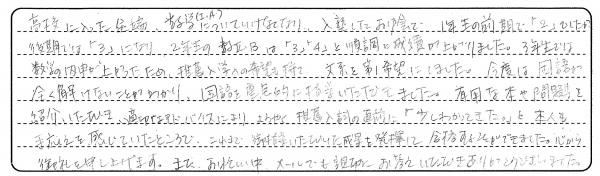 高校に入った途端、数学(ⅠA)についていけなくなり、入塾したおかげで、1年生の前期で「2」でしたが
後期では「3」になり、2年生の数ⅡBは「3」「4」と順調に成績が上がりました。3年生では
数学の内申が上がったため、推薦入学への希望も持て、文系を第1希望にしました。今度は国語が
全く解けないことがわかり、国語を重点的に指導いただきました。有用な本や問題を
紹介いただき、適切なアドバイスにより、ようやく推薦入試の直前に「少しわかってきた。」と本人も
手応えを感じていたところで、これまで指導いただいた成果を発揮して、合格することができました。心から
御礼を申し上げます。また、お忙しい中、メールでも親切にお答えいただきありがとうございました。